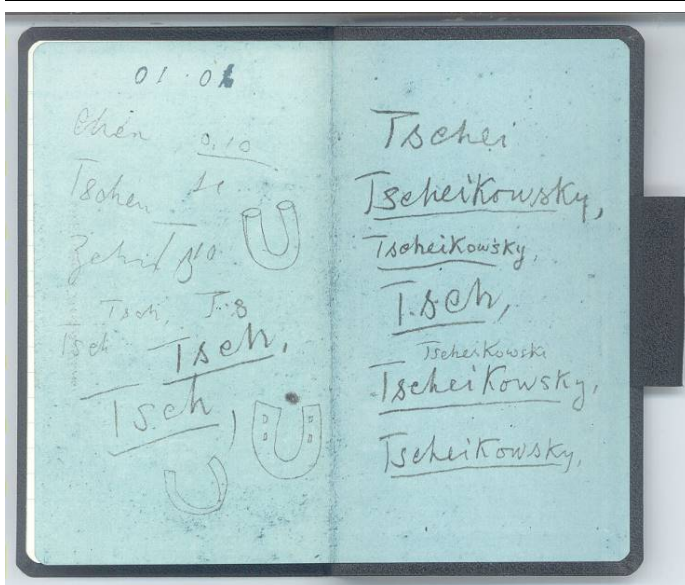 01.01
Chen 0,10
Tschen 10
Zehn 10
Tsch, T.8
Tsch Tsch,
Tsch,
Tschei
Tscheikowsky,
Tscheikowsky,
T.sch,
Tscheikowski
Tscheikowsky,
Tscheikowsky,